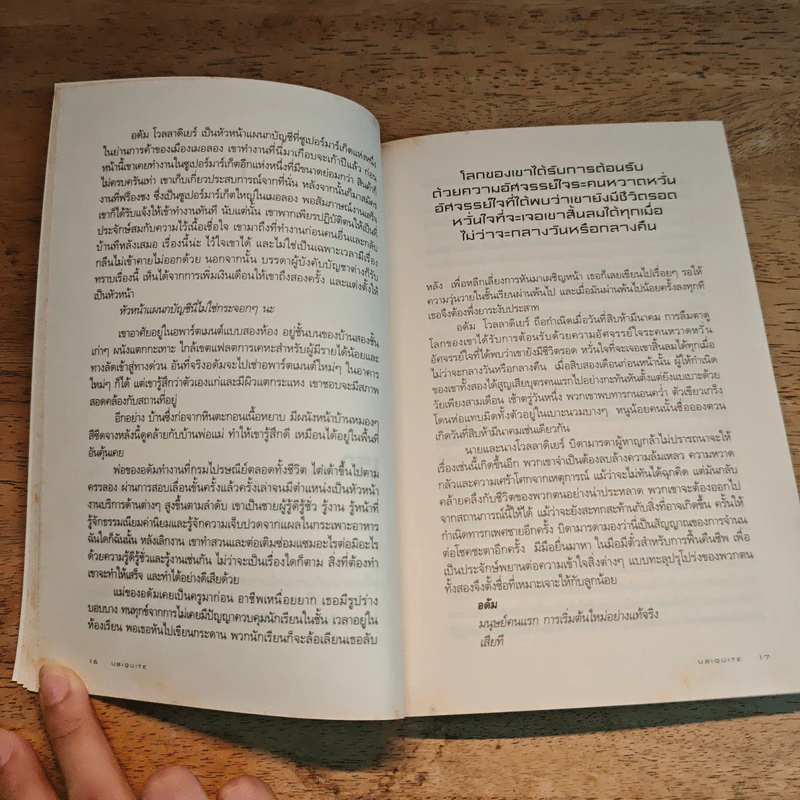 อดัม โวลลาดิเยร์ เป็นหัวหน้าแผนกบัญชีที่ซูเปอร์มาร์เก็ตแห่งหนึ่ง
ในย่านการค้าของเมืองเมอลอง เขาทำงานที่นี่มาเกือบจะเก้าปีแล้ว ก่อน
หน้านี้เขาเคยทำงานในซูเปอร์มาร์เก็ตอีกแห่งหนึ่งที่มีขนาดย่อมกว่า สินค้าก็
ไม่ครบครันเท่า เขาเก็บเกี่ยวประสบการณ์จากที่นั่น หลังจากนั้นก็มาสมัคร
งานที่ฟรีองซง ซึ่งเป็นซูเปอร์มาร์เก็ตใหญ่ในเมอลอง พอสัมภาษณ์งานเสร็จ
เขาก็ได้รับแจ้งให้เข้าทำงานทันที นับแต่นั้น เขาพากเพียรปฏิบัติตนให้เป็นที่
ประจักษ์สมกับความไว้เนื้อเชื่อใจ เขามาถึงที่ทำงานก่อนคนอื่นและกลับ
บ้านทีหลังเสมอ เรื่องนี้น่ะ ไว้ใจเขาได้ และไม่ใช่เป็นเฉพาะเวลามีเรื่อง
กลืนไม่เข้าคายไม่ออกด้วย นอกจากนั้น บรรดาผู้บังคับบัญชาต่างก็รับ
ทราบเรื่องนี้ เห็นได้จากการเพิ่มเงินเดือนให้เขาถึงสองครั้ง และแต่งตั้งให้
เป็นหัวหน้า
หัวหน้าแผนกบัญชีนี่ไม่ใช่กระจอกๆ นะ
เขาอาศัยอยู่ในอพาร์ตเมนต์แบบสองห้อง อยู่ชั้นบนของบ้านสองชั้น
เก่าๆ ผนังแตกกะเทาะ ใกล้เขตแฟลตการเคหะสำหรับผู้มีรายได้น้อยและ
ทางลัดเข้าสู่ทางด่วน อันที่จริงอดัมจะไปเช่าอพาร์ตเมนต์ใหม่ๆ ในอาคาร
ใหม่ๆ ก็ได้ แต่เขารู้สึกว่าตัวเองแก่และมีผิวแตกระแหง เขาชอบจะมีสภาพ
สอดคล้องกับสถานที่อยู่
อีกอย่าง บ้านซึ่งก่อจากหินตะกอนเนื้อหยาบ มีผนังหน้าบ้านหมองๆ
สีซีดจางหลังนี้ดูคล้ายกับบ้านพ่อแม่ ทำให้เขารู้สึกดี เหมือนได้อยู่ในพื้นที่
อันคุ้นเคย
พ่อของอดัมทำงานที่กรมไปรษณีย์ตลอดทั้งชีวิต ไต่เต้าขึ้นไปตาม
ครรลอง ผ่านการสอบเลื่อนขั้นครั้งแล้วครั้งเล่าจนมีตำแหน่งเป็นหัวหน้า
งานบริการด้านต่างๆ สูงขึ้นตามลำดับ เขาเป็นชายผู้รู้ดีรู้ชั่ว รู้งาน รู้หน้าที่
รู้จักธรรมเนียมค่านิยมและรู้จักความเจ็บปวดจากแผลในกระเพาะอาหาร
ฉันใดก็ฉันนั้น หลังเลิกงาน เขาทำสวนและต่อเติมซ่อมแซมอะไรต่อมิอะไร
ด้วยความรู้ดีรู้ชั่วและรู้งานเช่นกัน ไม่ว่าจะเป็นเรื่องใดก็ตาม สิ่งที่ต้องทำ
เขาจะทำให้เสร็จ และทำได้อย่างดีเสียด้วย
แม่ของอดัมเคยเป็นครูมาก่อน อาชีพเหนื่อยยาก เธอมีรูปร่าง
บอบบาง ทนทุกข์จากการไม่เคยมีปัญญาควบคุมนักเรียนในชั้น เวลาอยู่ใน
ห้องเรียน พอเธอหันไปเขียนกระดาน พวกนักเรียนก็จะล้อเลียนเธอลับ
16 UBIQUITE
โลกของเขาได้รับการต้อนรับ
ด้วยความอัศจรรย์ใจระคนหวาดหวั่น
อัศจรรย์ใจที่ได้พบว่าเขายังมีชีวิตรอด
หวั่นใจที่จะเจอเขาสิ้นลมได้ทุกเมื่อ
ไม่ว่าจะกลางวันหรือกลางคืน
หลัง เพื่อหลีกเลี่ยงการหันมาเผชิญหน้า เธอก็เลยเขียนไปเรื่อยๆ รอให้
ความวุ่นวายในชั้นเรียนผ่านพ้นไป และเมื่อมันผ่านพ้นไปน้อยครั้งลงทุกที
เธอจึงต้องพึ่งยาระงับประสาท
อดัม โวลลาดิเยร์ ถือกำเนิดเมื่อวันที่สิบห้ามีนาคม การลืมตาดู
โลกของเขาได้รับการต้อนรับด้วยความอัศจรรย์ใจระคนหวาดหวั่น
อัศจรรย์ใจที่ได้พบว่าเขายังมีชีวิตรอด หวั่นใจที่จะเจอเขาสิ้นลมได้ทุกเมื่อ
ไม่ว่าจะกลางวันหรือกลางคืน เมื่อสิบสองเดือนก่อนหน้านั้น ผู้ให้กำเนิด
ของเขาทั้งสองได้สูญเสียบุตรคนแรกไปอย่างกะทันหันตั้งแต่ยังแบเบาะด้วย
วัยเพียงสามเดือน เช้าตรู่วันหนึ่ง พวกเขาพบทารกนอนคว่ำ ตัวเขียวเกร็ง
โดนห่อแทบมิดทั้งตัวอยู่ในเบาะนวมบางๆ หนูน้อยคนนั้นชื่อออตวน
เกิดวันที่สิบห้ามีนาคมเช่นเดียวกัน
นายและนางโวลลาดิเยร์ บิดามารดาผู้หาญกล้าไม่ปรารถนาจะให้
เรื่องเช่นนี้เกิดขึ้นอีก พวกเขาจำเป็นต้องลบล้างความล้มเหลว ความหวาด
กลัวและความเศร้าโศกจากเหตุการณ์ แม้ว่าจะไม่ทันได้ฉุกคิด แต่มันกลับ
คล้ายคลึงกับชีวิตของพวกตนอย่างน่าประหลาด พวกเขาจะต้องออกไป
จากสถานการณ์นี้ให้ได้ แม้ว่าจะยังสะทกสะท้านกับสิ่งที่อาจเกิดขึ้น ครั้นให้
กำเนิดทารกเพศชายอีกครั้ง บิดามารดามองว่านี่เป็นสัญญาณของการจำนน
ต่อโชคชะตาอีกครั้ง มีมือยื่นมาหา ในมือมีตั๋วสำหรับการฟื้นคืนชีพ เพื่อ
เป็นประจักษ์พยานต่อความเข้าใจสิ่งต่างๆ แบบทะลุปรุโปร่งของพวกตน
ทั้งสองจึงตั้งชื่อที่เหมาะเจาะให้กับลูกน้อย
อดัม
มนุษย์คนแรก การเริ่มต้นใหม่อย่างแท้จริง
เสียที
UBIQUITE 17